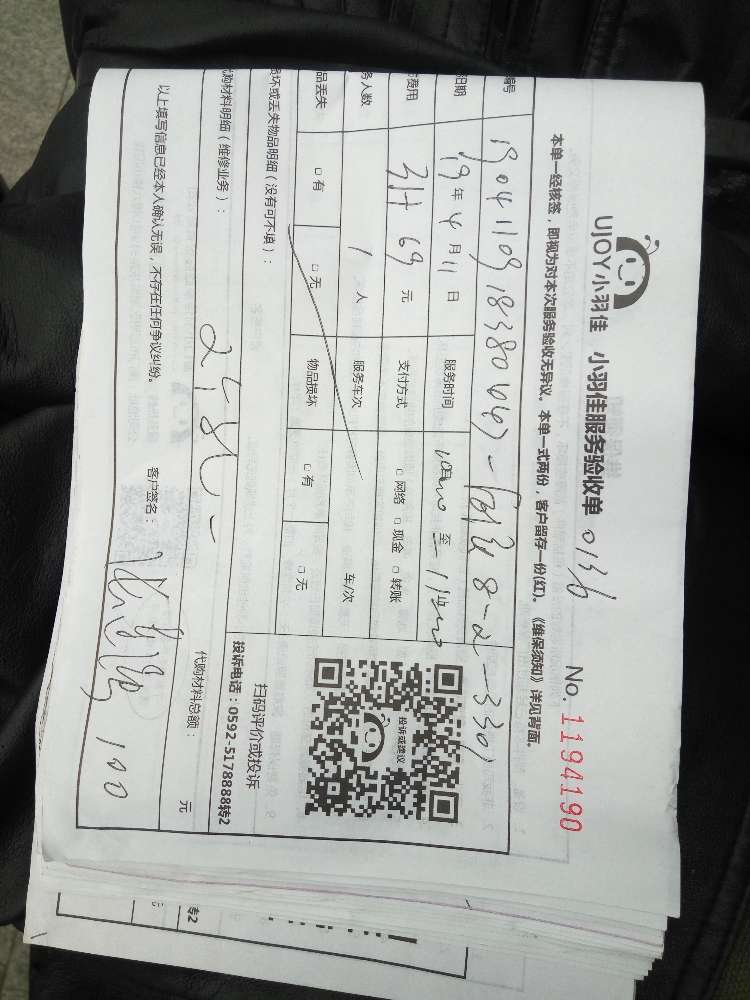 UJOY小羽佳 小羽佳服务验收单 0136 No. 1194190
本单一经核签，即视为对本次服务验收无异议。本单一式两份，客户留存一份(红)。《维保须知》详见背面。
编号 8-2-3301
日期 19年4月11日 服务时间 至
费用 69元 支付方式 □网络 □现金 □转账
务人数 1人 服务车次 车/次
品丢失 □有 □无 物品损坏 □有 □无
损坏或丢失物品明细（没有可不填）：
投诉或建议
扫码评价或投诉
投诉电话：0592-5178888转2
代购材料明细（维修业务）： 代购材料总额： 元
以上填写信息已经本人确认无误，不存在任何争议纠纷。 客户签名： 100
转2